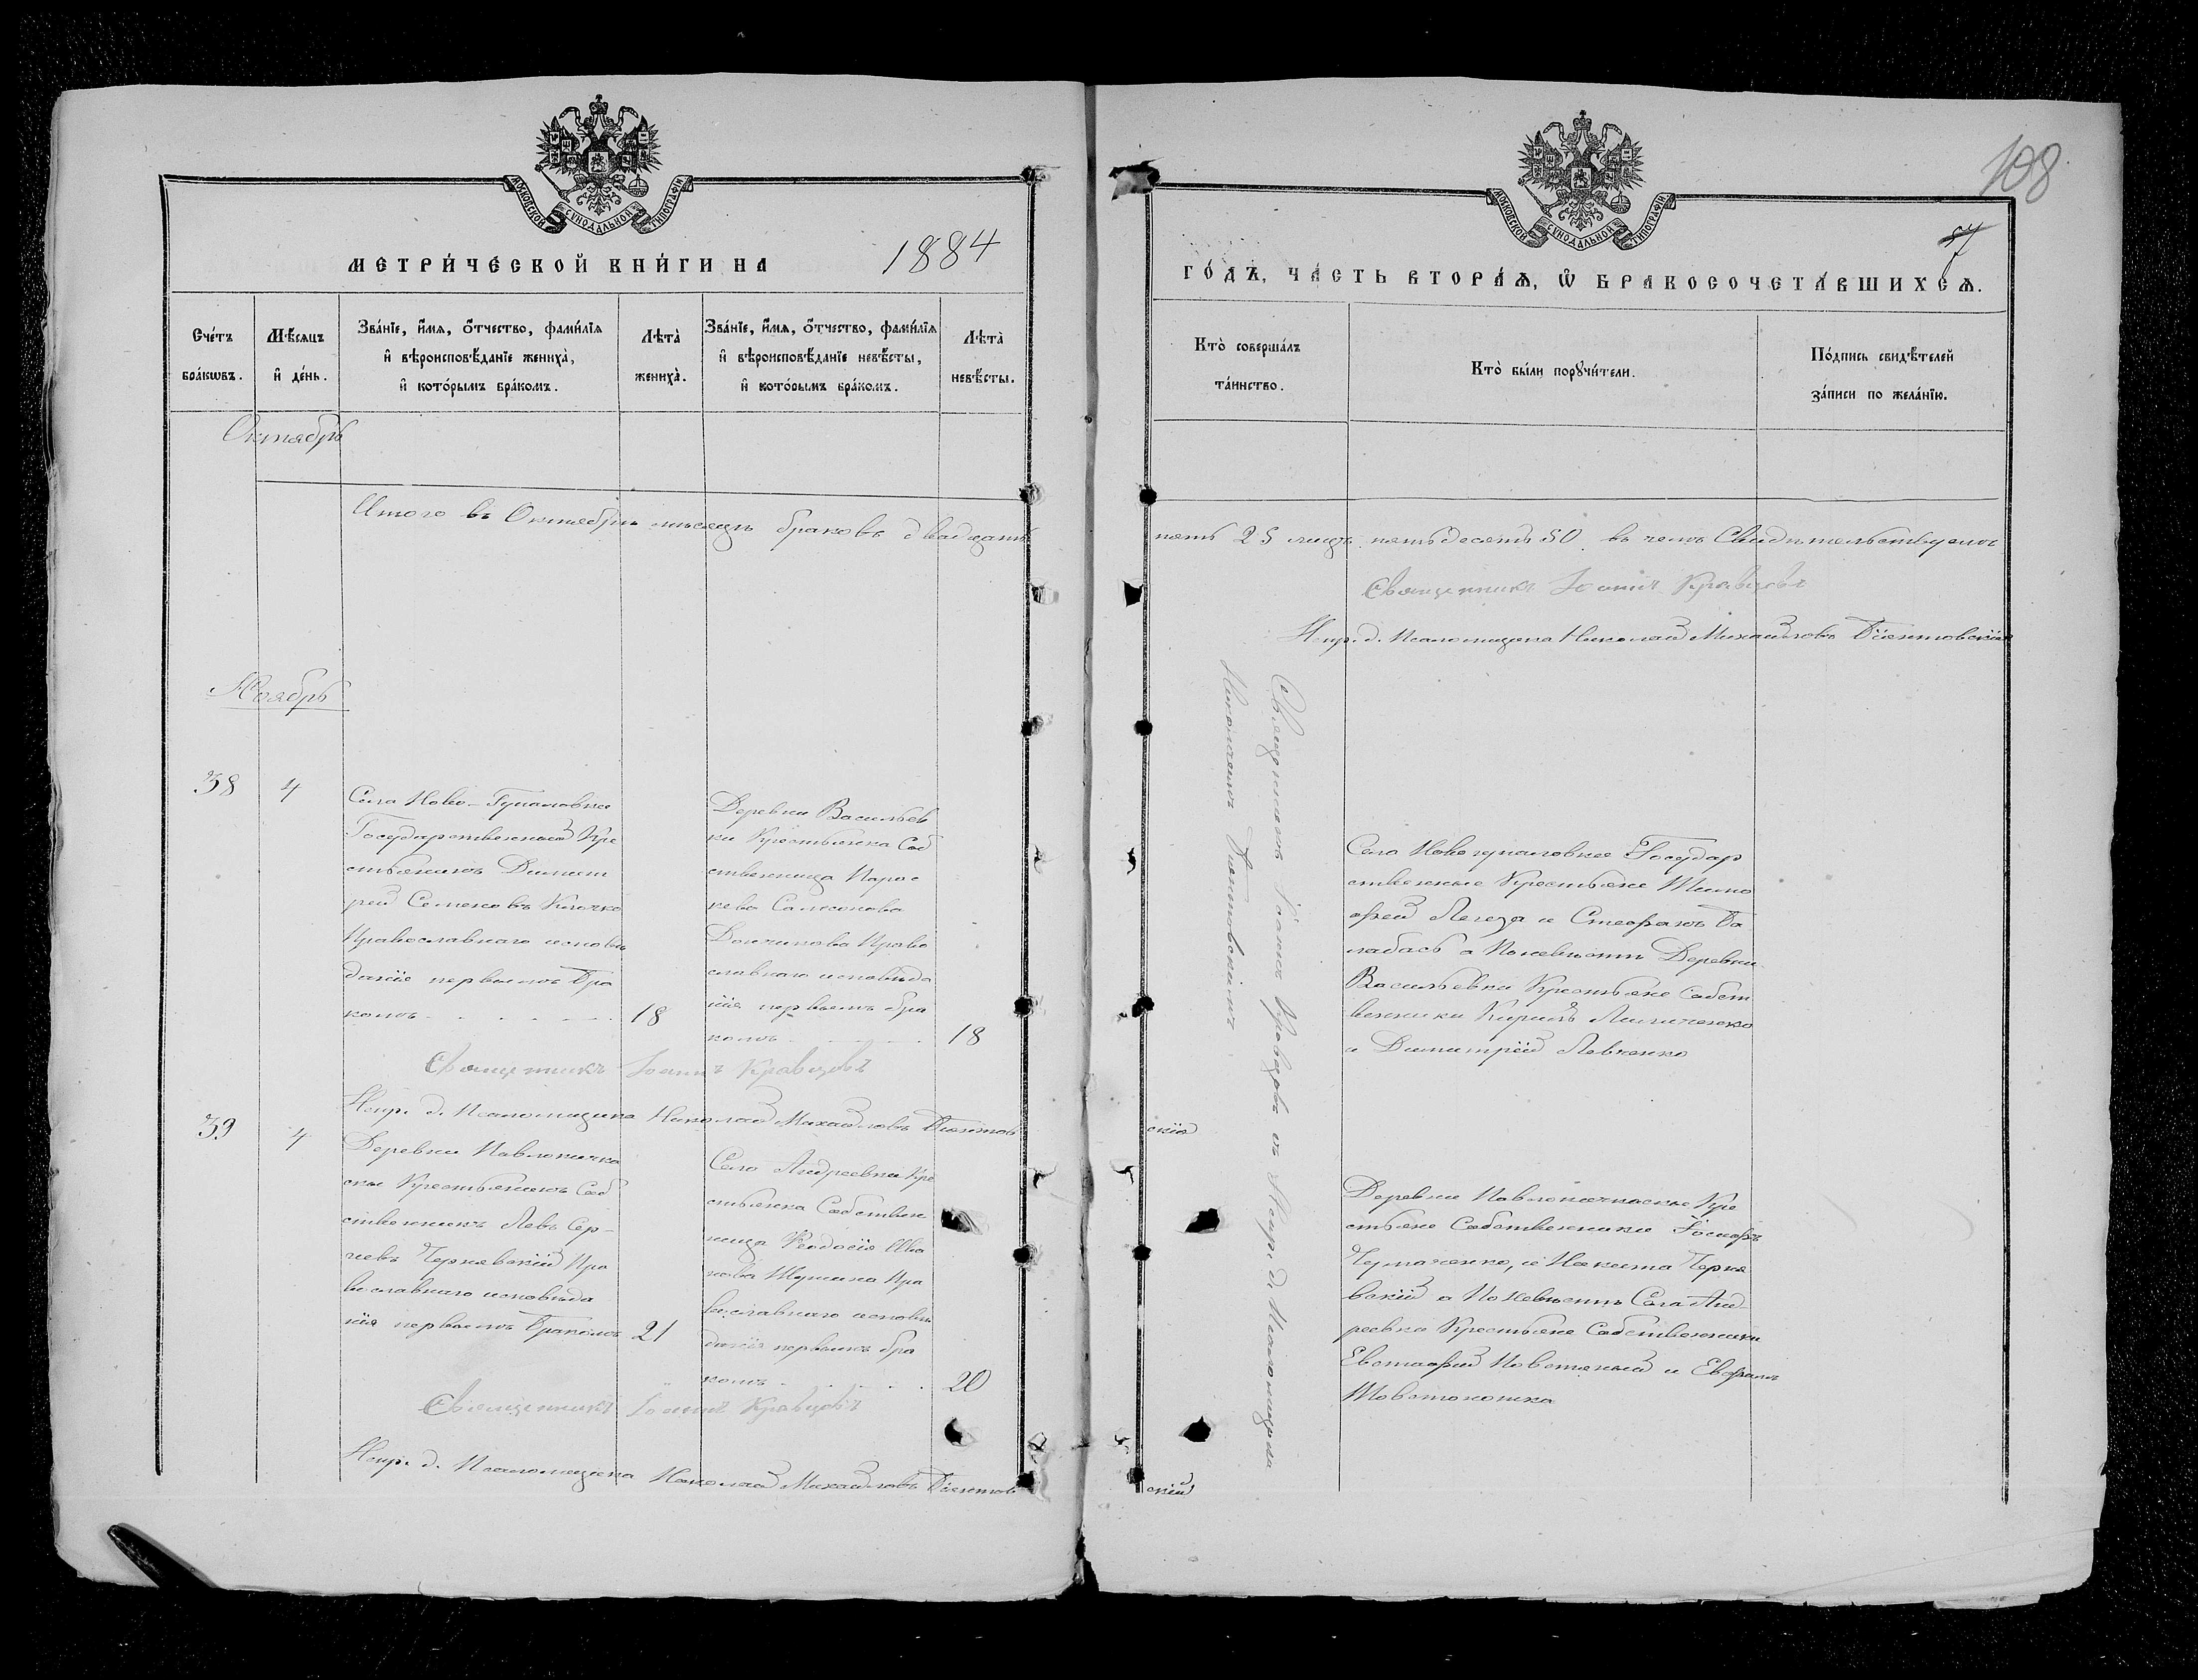 МОСКОВСКОЙ СѴНОДАЛЬНОЙ ТИПОГРАФІИ
МЕТРИ́ЧЕСКОЙ КНИ́ГИ НА 1884
Сче́тъ бра́кѡвъ.
Мѣ́сяцъ и҆ де́нь.
Зва́нїе, и҆́мѧ, ѻ҆́тчество, фамі́лїѧ
и҆ вѣроисповѣ́данїе жениха̀,
и҆ кото́рымъ бра́комъ.
Лѣта̀
жениха̀.
Зва́нїе, и҆́мѧ, ѻ҆́тчество, фамі́лїѧ
и҆ вѣроисповѣ́данїе невѣ́сты,
и҆ кото́рымъ бра́комъ.
Лѣта̀
невѣ́сты.
Октябрь
Итого въ Октябрѣ мѣсяцѣ браковъ двадцать
Ноябрь
38
4
Села Ново-
Государственный Кре
стьянинъ Димит
рій Семеновъ
Православнаго исповѣ
данія первымъ бра
комъ
18
Деревни Васильев
ки Крестьянка Соб
ственница Парас
кева
Право
славнаго исповѣда
нія первымъ бра
комъ
18
Священникъ Іоаннъ Кравцовъ
Испр. д. Псаломщика Николай Михайловъ
39
4
Деревни
Крестьянинъ Соб
ственникъ Левъ Сер-
гіевъ Чернявскій Пра
вославнаго исповѣда
нія первымъ бракомъ
21
Села Андреевки Кре
стьянка Собствен
ница Ѳеодосія
Пра
вославнаго исповѣ
данія первымъ бра
комъ
20
Священникъ Іоаннъ Кравцовъ
Испр. д. Псаломщика Николай Михайловъ
108
МОСКОВСКОЙ СѴНОДАЛЬНОЙ ТИПОГРАФІИ
57
ГО́ДЪ, ЧА́СТЬ ВТОРА́Ѧ, Ѽ БРАКОСОЧЕТА́ВШИХСѦ.
Кто̀ соверша́лъ
та́инство.
Кто̀ бы́ли порꙋчи́тели.
По́дпись свидѣ́телей
за́писи по жела́нїю.
пять 25 лицъ пятьдесятъ 50 въ чемъ Свидѣтельствуемъ
Священникъ Іоаннъ Кравцовъ
Испр. д. Псаломщика Николай Михайловъ
Священникъ Іоаннъ Кравцовъ съ Испр. д. Псаломщика
Николаемъ
Села Государ
ственные Крестьяне Тимо
фей Легеза и Стефанъ Ба
лабась а По невѣстѣ Деревни
Васильевки Крестьяне Собст
венники Кирилъ
и Димитрій Левченко
скій
Деревни Кре
стьяне Собственники Іосифъ
и Никита Черня
вскій а По Невѣстѣ Села Анд
реевки Крестьяне Собственники
Евстафій и
скій